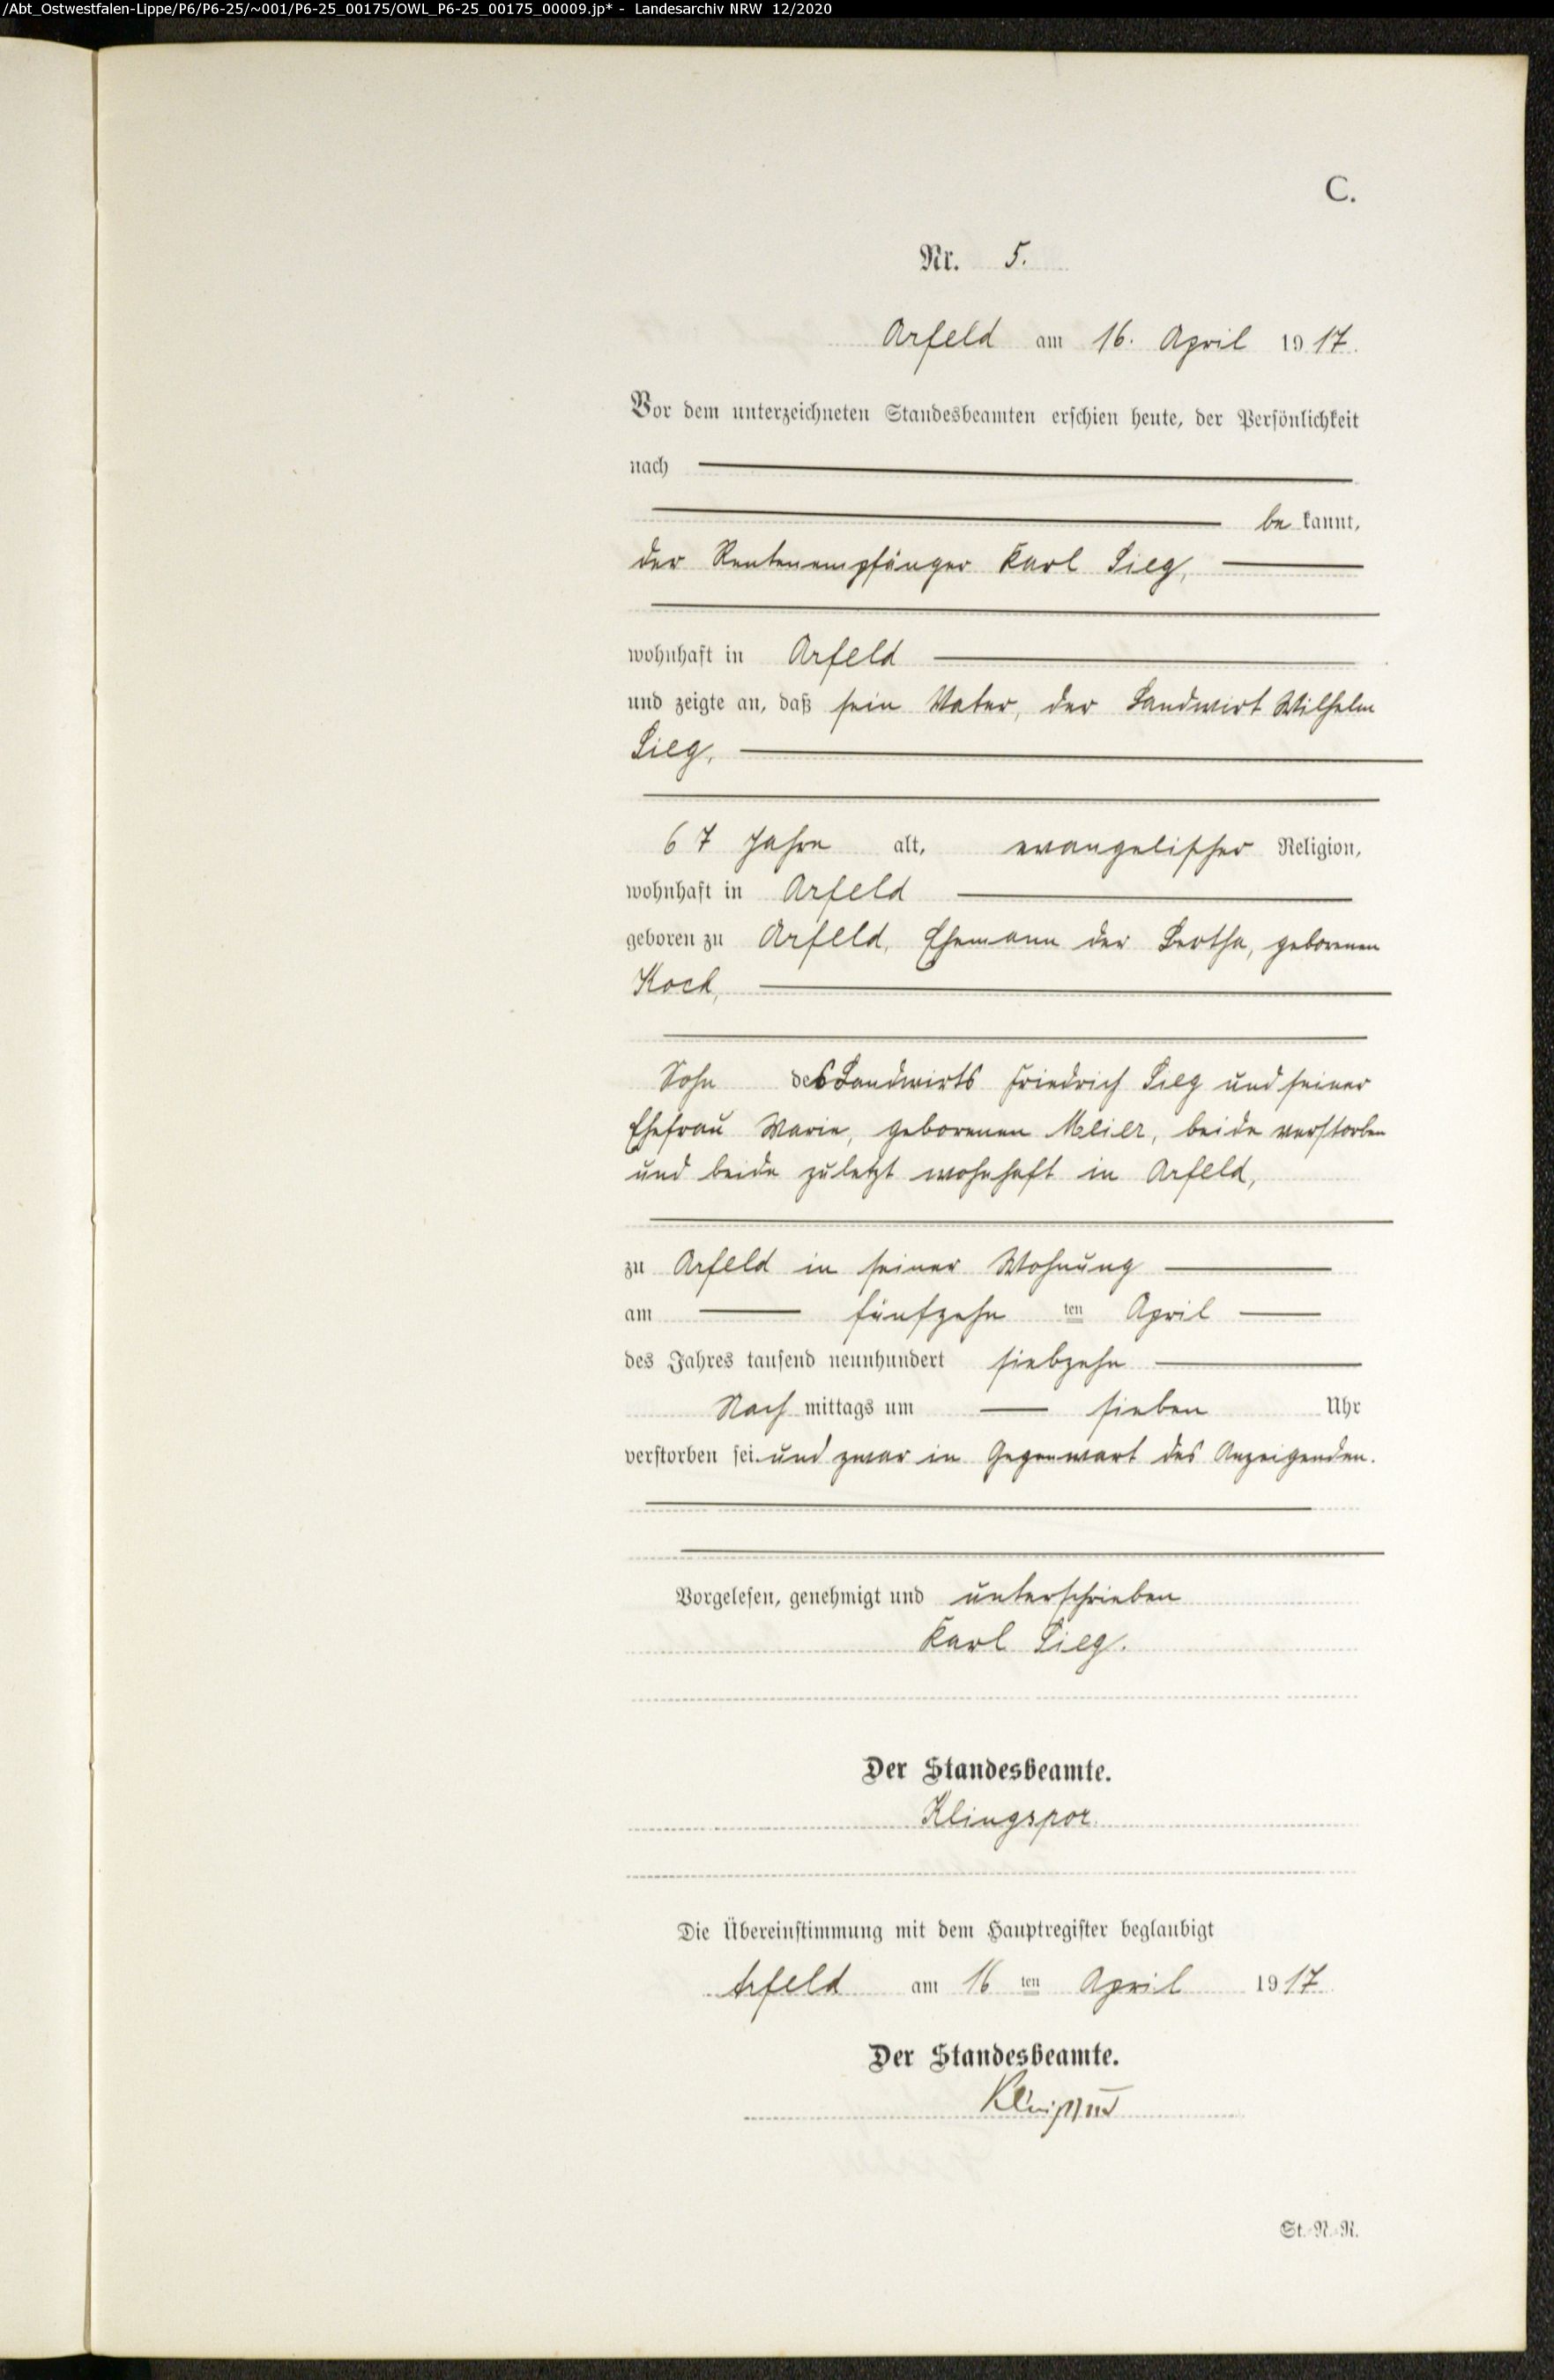 /Abt_Ostwestfalen-Lippe/P6/P6-25/~001/P6-25_00175/OWL_P6-25_00175_00009.jp* - Landesarchiv NRW 12/2020
C.
Nr. 5.
Arfeld am 16. April 1917.
Vor dem unterzeichneten Standesbeamten erschien heute, der Persönlichkeit
nach
be kannt,
der Rentenempfänger Karl Sieg,
wohnhaft in Arfeld
und zeigte an, daß sein Vater, der Landwirt Wilhelm
Sieg,
67 Jahre alt, evangelischer Religion,
wohnhaft in Arfeld
geboren zu Arfeld, Ehemann der Bertha, geborenen
Koch,
Sohn des Landwirts Friedrich Sieg und seiner
Ehefrau Marie, geborenen Meier, beide verstorben
und beide zuletzt wohnhaft in Arfeld,
zu Arfeld in seiner Wohnung
am fünfzehn ten April
des Jahres tausend neunhundert siebzehn
Nach mittags um sieben Uhr
verstorben sei und zwar in Gegenwart des Anzeigenden.
Vorgelesen, genehmigt und unterschrieben
Karl Sieg.
Der Standesbeamte.
Klingspor.
Die Übereinstimmung mit dem Hauptregister beglaubigt
Arfeld am 16 ten April 1917
Der Standesbeamte.
Klingspor
St.-N.-R.